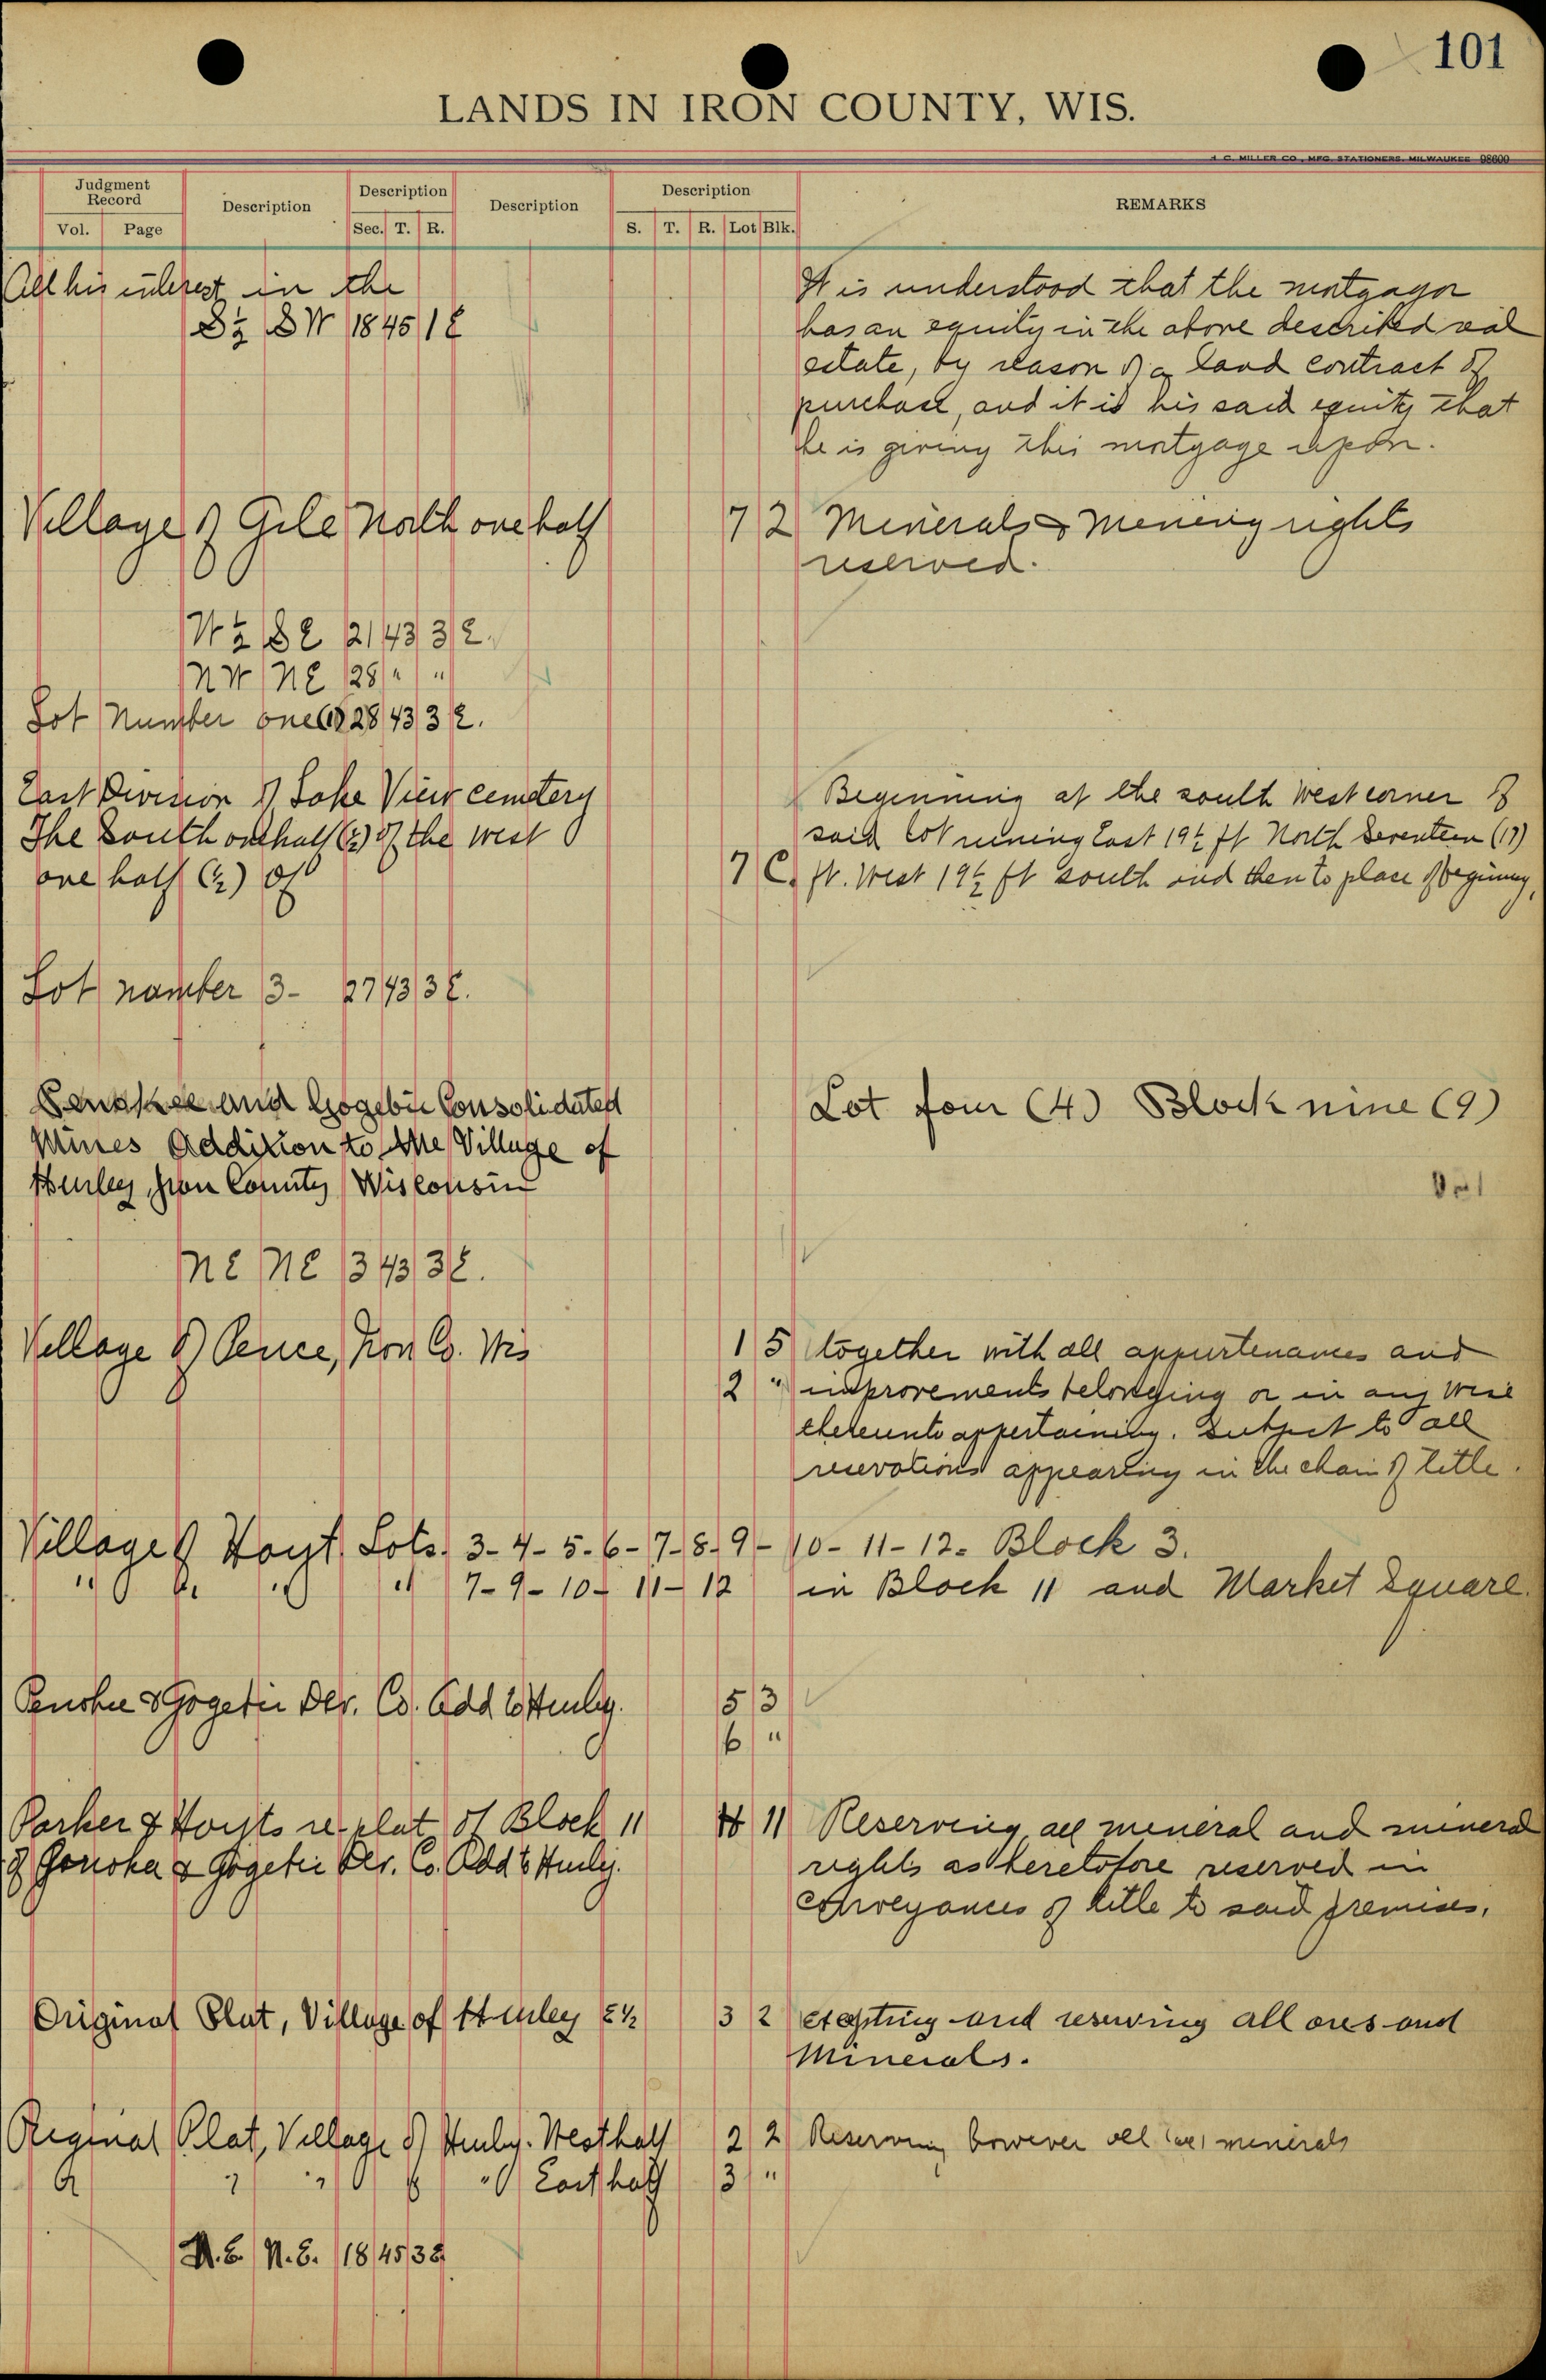 101
LANDS IN IRON COUNTY, WIS.
H. C. MILLER CO., MFG. STATIONERS, MILWAUKEE 98600
Judgment Record
Vol. Page
Description
Description
Sec. T. R.
Description
Description
S. T. R. Lot Blk.
REMARKS
All his interest in the
S½ SW 18 45 1 E
It is understood that the mortgagor
has an equity in the above described real
estate, by reason of a land contract of
purchase, and it is his said equity that
he is giving this mortgage upon.
Village of Gile North one half 7 2 Minerals & mining rights
reserved.
W½ SE 21 43 3 E.
NW NE 28 " "
Lot Number one (1) 28 43 3 E.
East Division of Lake View cemetery
The South one half (½) of the west
one half (½) of 7 C.
Beginning at the south west corner of
said lot running East 19½ ft North Seventeen (17)
ft. West 19½ ft south and then to place of beginning,
Lot number 3 - 27 43 3 E.
and Gogebic Consolidated
Mines Addition to the Village of
Hurley, Iron County Wisconsin
Lot four (4) Block nine (9)
NE NE 3 43 3 E.
Village of Pence, Iron Co. Wis 1 5 together with all appurtenances and
2 " improvements belonging or in any wise
thereunto appertaining. Subject to all
reservations appearing in the chain of title.
Village of Hoyt Lots 3-4-5-6-7-8-9-10-11-12- Block 3.
" " " " 7-9-10-11-12 in Block 11 and Market Square.
Penokee & Gogebic Dev. Co. Add to Hurley. 5 3
6 "
Parker & Hoyts re-plat of Block 11 11 Reserving all mineral and mineral
of & Gogebic Dev. Co. Add to Hurley. rights as heretofore reserved in
conveyances of title to said premises.
Original Plat, Village of Hurley E½ 3 2 excepting and reserving all ores and
Minerals.
Original Plat, Village of Hurley. West half 2 2 Reserving however all minerals
" " " " East half 3 "
N.E. N.E. 18 45 3E